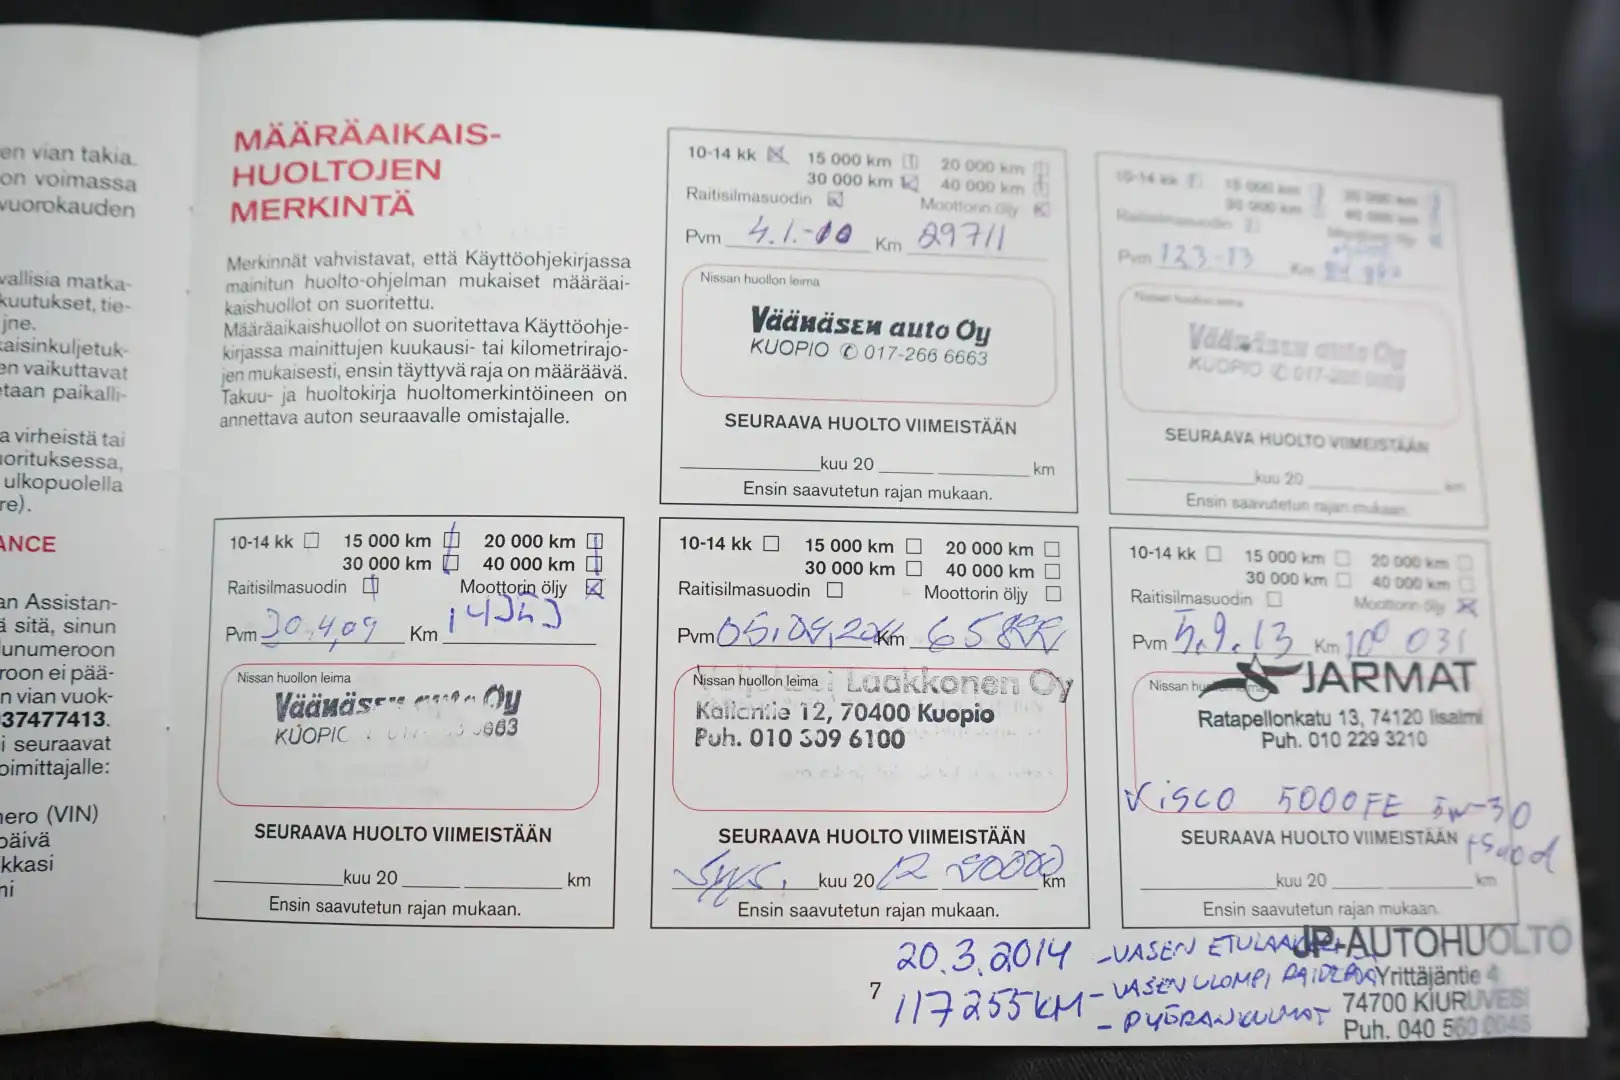 en vian takia.
on voimassa
vuorokauden
vallisia matka-
kuutukset, tie-
jne.
kaisinkuljetuk-
en vaikuttavat
etaan paikalli-
a virheistä tai
uorituksessa,
ulkopuolella
re).
ANCE
an Assistan-
ä sitä, sinun
unumeroon
roon ei pää-
n vian vuok-
37477413.
i seuraavat
oimittajalle:
nero (VIN)
päivä
kkasi
ni
MÄÄRÄAIKAIS-
HUOLTOJEN
MERKINTÄ
Merkinnät vahvistavat, että Käyttöohjekirjassa
mainitun huolto-ohjelman mukaiset määräai-
kaishuollot on suoritettu.
Määräaikaishuollot on suoritettava Käyttöohje-
kirjassa mainittujen kuukausi- tai kilometrirajo-
jen mukaisesti, ensin täyttyvä raja on määräävä.
Takuu- ja huoltokirja huoltomerkintöineen on
annettava auton seuraavalle omistajalle.
10-14 kk 15 000 km 20 000 km
30 000 km 40 000 km
Raitisilmasuodin Moottorin öljy
Pvm 4.1.-10 Km 29711
Nissan huollon leima
Väänäsen auto Oy
KUOPIO ✆ 017-266 6663
SEURAAVA HUOLTO VIIMEISTÄÄN
kuu 20 km
Ensin saavutetun rajan mukaan.
10-14 kk 15 000 km 20 000 km
30 000 km 40 000 km
Raitisilmasuodin Moottorin öljy
Pvm 12.3-13 Km
Nissan huollon leima
Väänäsen auto Oy
KUOPIO ✆ 017-266 6663
SEURAAVA HUOLTO VIIMEISTÄÄN
kuu 20 km
Ensin saavutetun rajan mukaan.
10-14 kk 15 000 km 20 000 km
30 000 km 40 000 km
Raitisilmasuodin Moottorin öljy
Pvm 30.4.09 Km
Nissan huollon leima
Väänäsen auto Oy
KUOPIO
SEURAAVA HUOLTO VIIMEISTÄÄN
kuu 20 km
Ensin saavutetun rajan mukaan.
10-14 kk 15 000 km 20 000 km
30 000 km 40 000 km
Raitisilmasuodin Moottorin öljy
Pvm Km
Nissan huollon leima Laakkonen Oy
Kallantie 12, 70400 Kuopio
Puh. 010 309 6100
SEURAAVA HUOLTO VIIMEISTÄÄN
Syys. kuu 20 12 90000 km
Ensin saavutetun rajan mukaan.
10-14 kk 15 000 km 20 000 km
30 000 km 40 000 km
Raitisilmasuodin Moottorin öljy
Pvm 5.9.13 Km 100 031
Nissan JARMAT
Ratapellonkatu 13, 74120 Iisalmi
Puh. 010 229 3210
Visco 5000FE 5w-30
SEURAAVA HUOLTO VIIMEISTÄÄN +Suod
kuu 20 km
Ensin saavutetun rajan mukaan.
20.3.2014 -VASEN JP-AUTOHUOLTO
117255KM -VASEN ULOMPI Yrittäjäntie 4
74700 KIURUVESI
-PYÖRÄNKULMAT
Puh. 040 560 0045
7